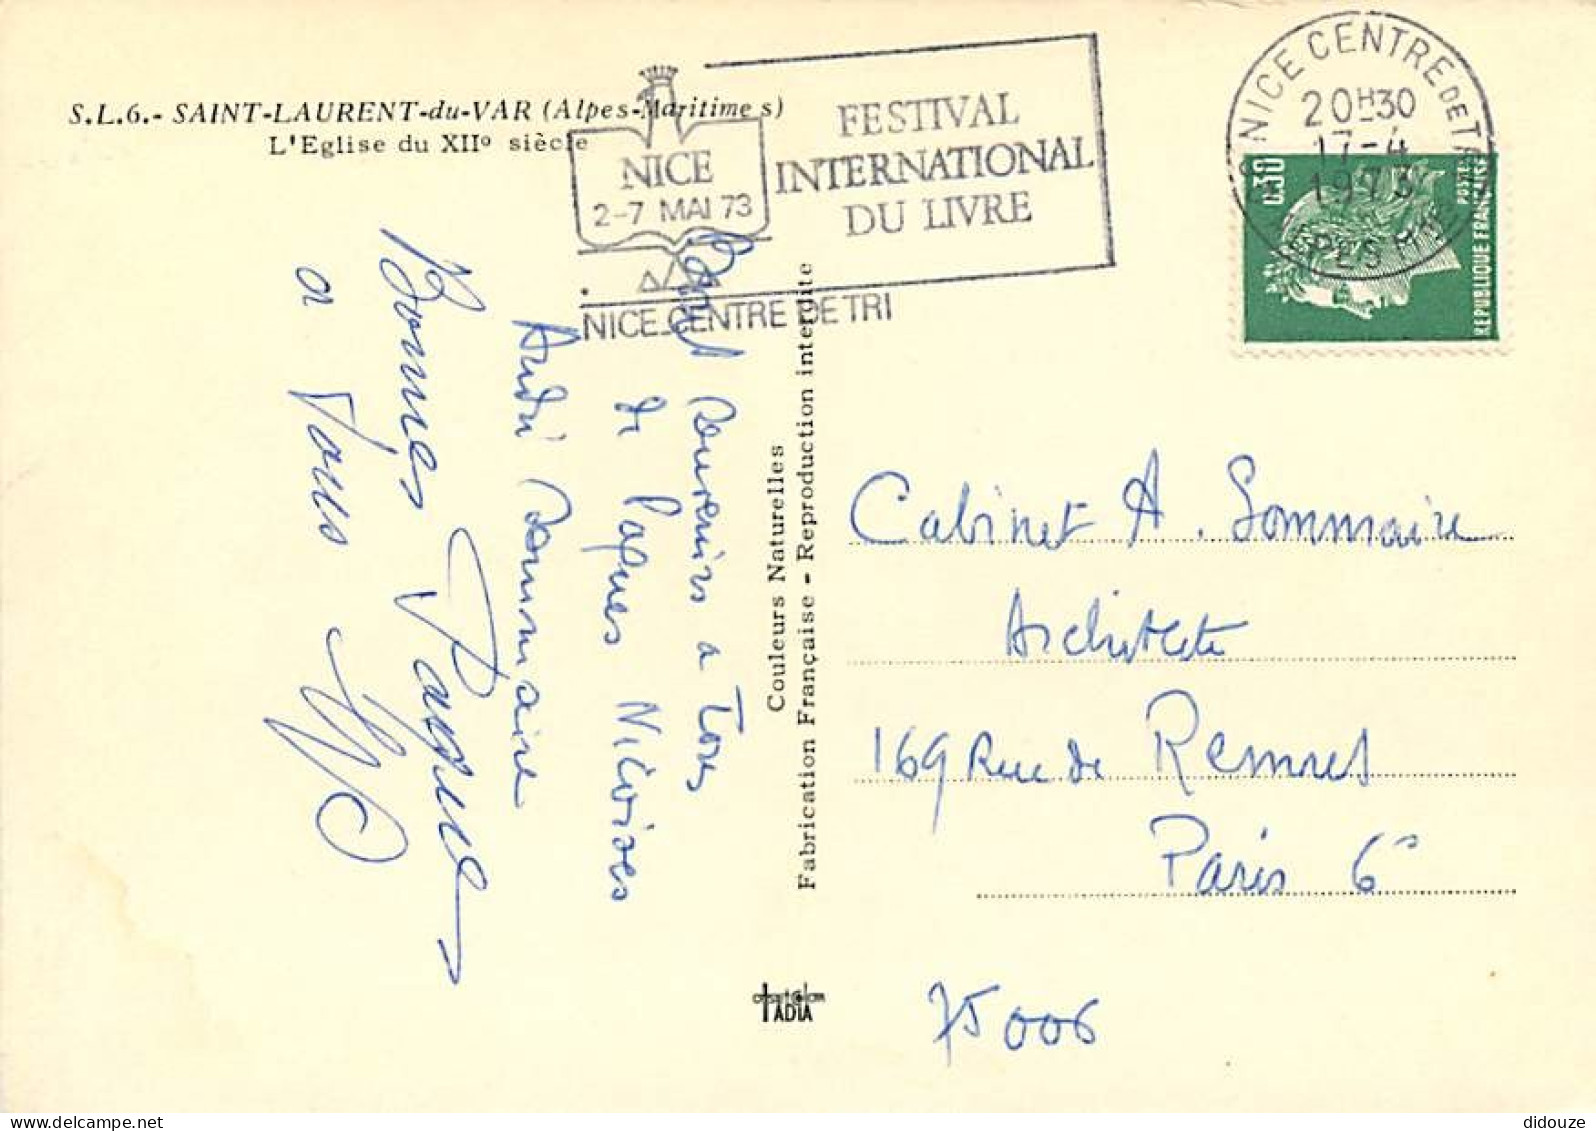 S.L.6.- SAINT-LAURENT-du-VAR (Alpes-Maritimes)
L'Eglise du XIIº siècle
NICE
2-7 MAI 73
FESTIVAL
INTERNATIONAL
DU LIVRE
NICE CENTRE DE TRI
NICE CENTRE DE TRI
20H30
17-4
1973
ALPES MMES
0,30
POSTES
REPUBLIQUE FRANÇAISE
souvenirs a Tous
de Paques Niçoises
André Sommaire
Bonnes Paques
a Vous
Couleurs Naturelles
Fabrication Française - Reproduction interdite
Cabinet A. Sommaire
Architecte
169 Rue de Rennes
Paris 6e
75006
TADIA
didouze